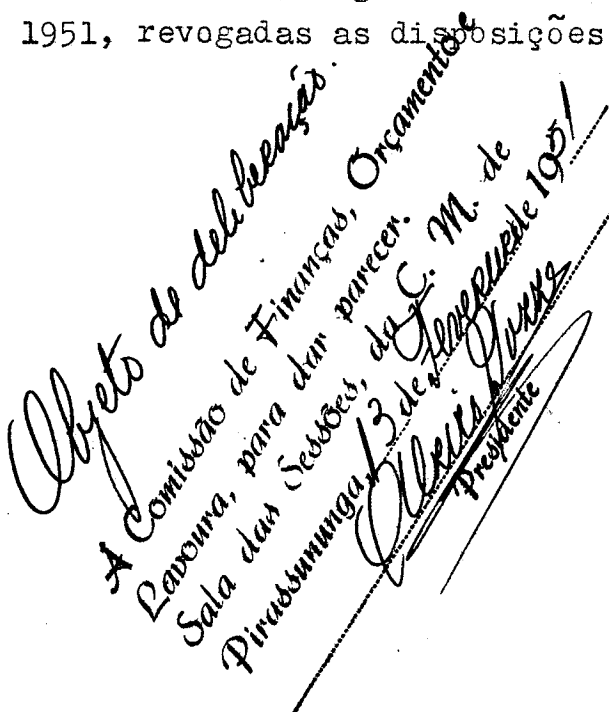 1951, revogadas as disposições
Objeto de deliberação.
A Comissão de Finanças, Orçamento e
Lavoura, para dar parecer.
Sala das Sessões, da C. M. de
Pirassununga, 13 de Fevereiro de 1951
Presidente